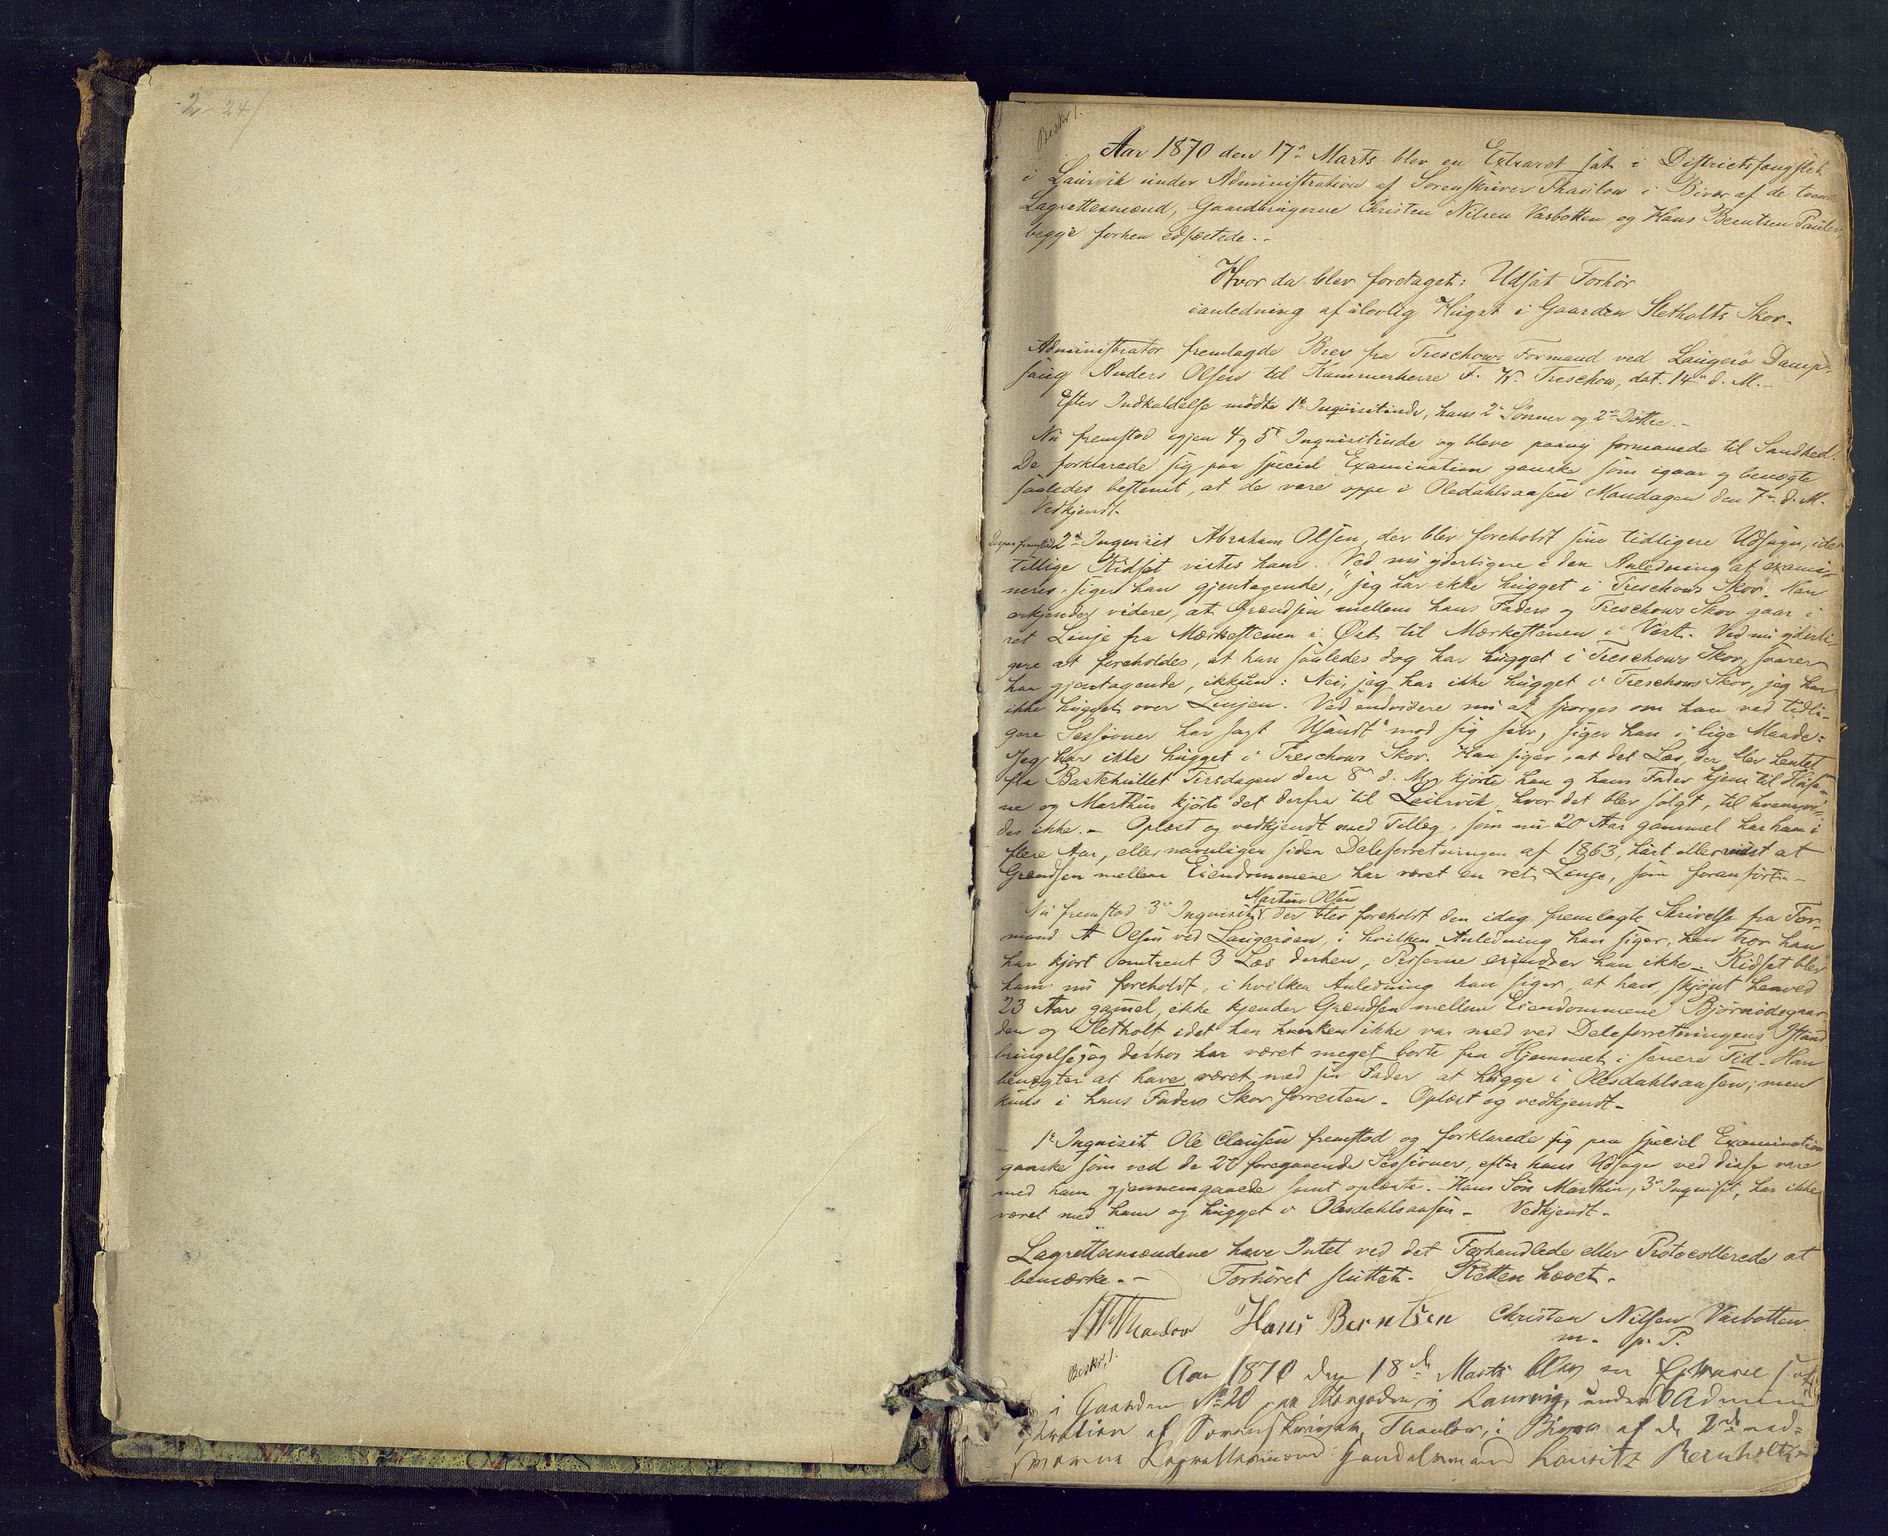 2-24/
Beskr 1.
Aar 1870 den 17de Marts blev en Extraret sat i Districtsfængslet
i Laurvik under Administration af Sorenskriver Thaulow i Bivær af de tvende
Lagrettesmænd, Gaardbrugerne Christen Nilsen Vasbotten og Hans Berntsen Pauler,
begge forhen edfæstede.-
Hvor da blev foretaget: Udsat Forhør
i anledning af ulovlig Hugst i Gaarden Sletholts Skov.
Administrator fremlagde Brev fra Treschows Formand ved Langerø Damp-
saug Anders Olsen til Kammerherre F. W. Treschow, dat. 14de d. M.-
Efter Indkaldelse mødte 1te Inquisitinde, hans 2de Sønner og 2de Døttre.-
Nu fremstod igjen 4 og 5te Inquisitinde og bleve paany formanede til Sandhed.
De forklarede sig paa special Examination ganske som igaar og benegte
saaledes bestemt, at de vare oppe i Olesdahlsaasen Mandagen den 7de d. M.
Vedkjendt.
2den Inquisit Abraham Olsen, der blev foreholdt sine tidligere Udsagn, idet
tillige Ridset vistes ham. Ved nu yderligere i den Anledning at exami-
neres, siger han gjentagende, "jeg har ikke hugget i Treschows Skov". Han
erkjender videre, at Grændsen mellem hans Faders og Treschows Skov gaar i
ret Linje fra Mærkestenen i Øst til Mærkestenen i Vest. Ved nu yderli
gere at foreholdes, at han saaledes dog har hugget i Treschows Skov, svarer
han gjentagende, ikkun: Nei, jeg har ikke hugget i Treschows Skov, jeg har
ikke hugget over Linjen. Ved endvidere nu at spørges om han ved tidli-
gere Sessioner har sagt Usandt mod sig selv, siger han i lige Maade:
Jeg har ikke hugget i Treschows Skov. Han siger, at det Læs, der blev hentet
fra Bastehullet Tirsdagen den 8de d. M., kjørte han og hans Fader hjem til Huse-
ne og Marthin kjørte det derfra til Laurvik, hvor det blev solgt, til hvem vi-
des ikke.- Oplæst og vedkjendt med Tillæg, som nu 20 Aar gammel har han i
flere Aar, eller navnligen siden Deleforretningen af 1863, hørt eller vidst at
Grændsen mellem Eiendommene har været en ret Linje, som foranført.-
Martin Olsen
Nu fremstod 3de Inquisit der blev foreholdt den idag fremlagte Skrivelse fra For-
mand A Olsen ved Langerøen, i hvilken Anledning han siger, han tror han
har kjørt omtrent 3 Læs derhen, Priserne erindrer han ikke.- Ridset blev
ham nu foreholdt, i hvilken Anledning han siger, at han, skjønt henved
23 Aar gamel, ikke kjender Grændsen mellem Eiendommene Bjørnødegaar
den og Sletholt idet han hverken ikke var med ved Deleforretningens Istand
bringelse og derhos har været meget borte fra Hjemmet i senere Tid. Han
benegter at have været med sin Fader at hugge i Olesdahlsaasen; men
kuns i hans Faders Skov forresten.- Oplæst og vedkjendt.-
1te Inquisit Ole Clausen fremstod og forklarede sig paa speciel Examination
ganske som ved de 2de foregaaende Sessioner, efter hans Udsagn ved disse vare
med ham gjennemgaaede samt oplæste.- Hans Søn Marthin, 3de Inquisit, har ikke
været med ham og hugget i Olesdahlsaasen.- Vedkjendt.-
Lagrettesmændene have Intet ved det Forhandlede eller Protocollerede at
bemærke.- Forhøret sluttet.- Retten hævet.-
Thaulow Hans Berntsen Christen Nilsen Vasbotten
m. p. P.
Beskr. 1.
Aar 1870 den 18de Marts blev en Extraret sat
i Gaarden No 20 paa Thorgaden i Laurvig, under Admini
stration af Sorenskriver Thaulow, i Bivær af de 2de ned-
Lagrettesmænd Laurits Bernholt